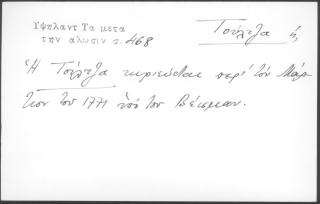 Υψηλαντ Τα μετα
την αλωσιν σ. 468
Τούλτζα ἡ,
Ἡ Τούλτζα κυριεύεται περί τόν Μάρ-
τιον του 1771 ὑπό του Βέισμαν.